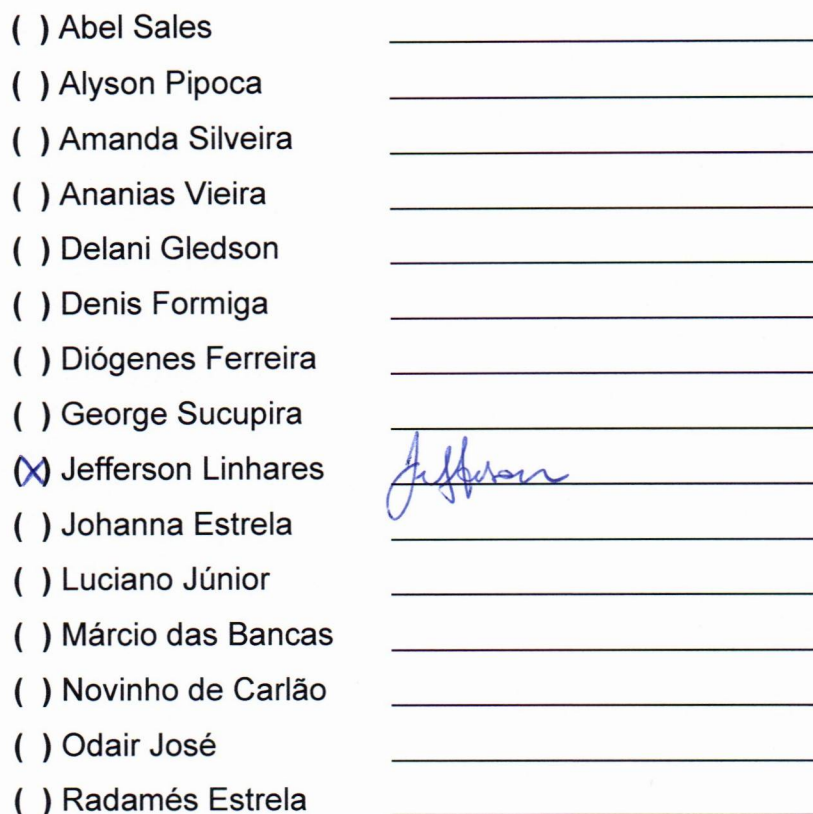 ( ) Abel Sales ____________________
( ) Alyson Pipoca ____________________
( ) Amanda Silveira ____________________
( ) Ananias Vieira ____________________
( ) Delani Gledson ____________________
( ) Denis Formiga ____________________
( ) Diógenes Ferreira ____________________
( ) George Sucupira ____________________
(X) Jefferson Linhares Jefferson
( ) Johanna Estrela ____________________
( ) Luciano Júnior ____________________
( ) Márcio das Bancas ____________________
( ) Novinho de Carlão ____________________
( ) Odair José ____________________
( ) Radamés Estrela ____________________